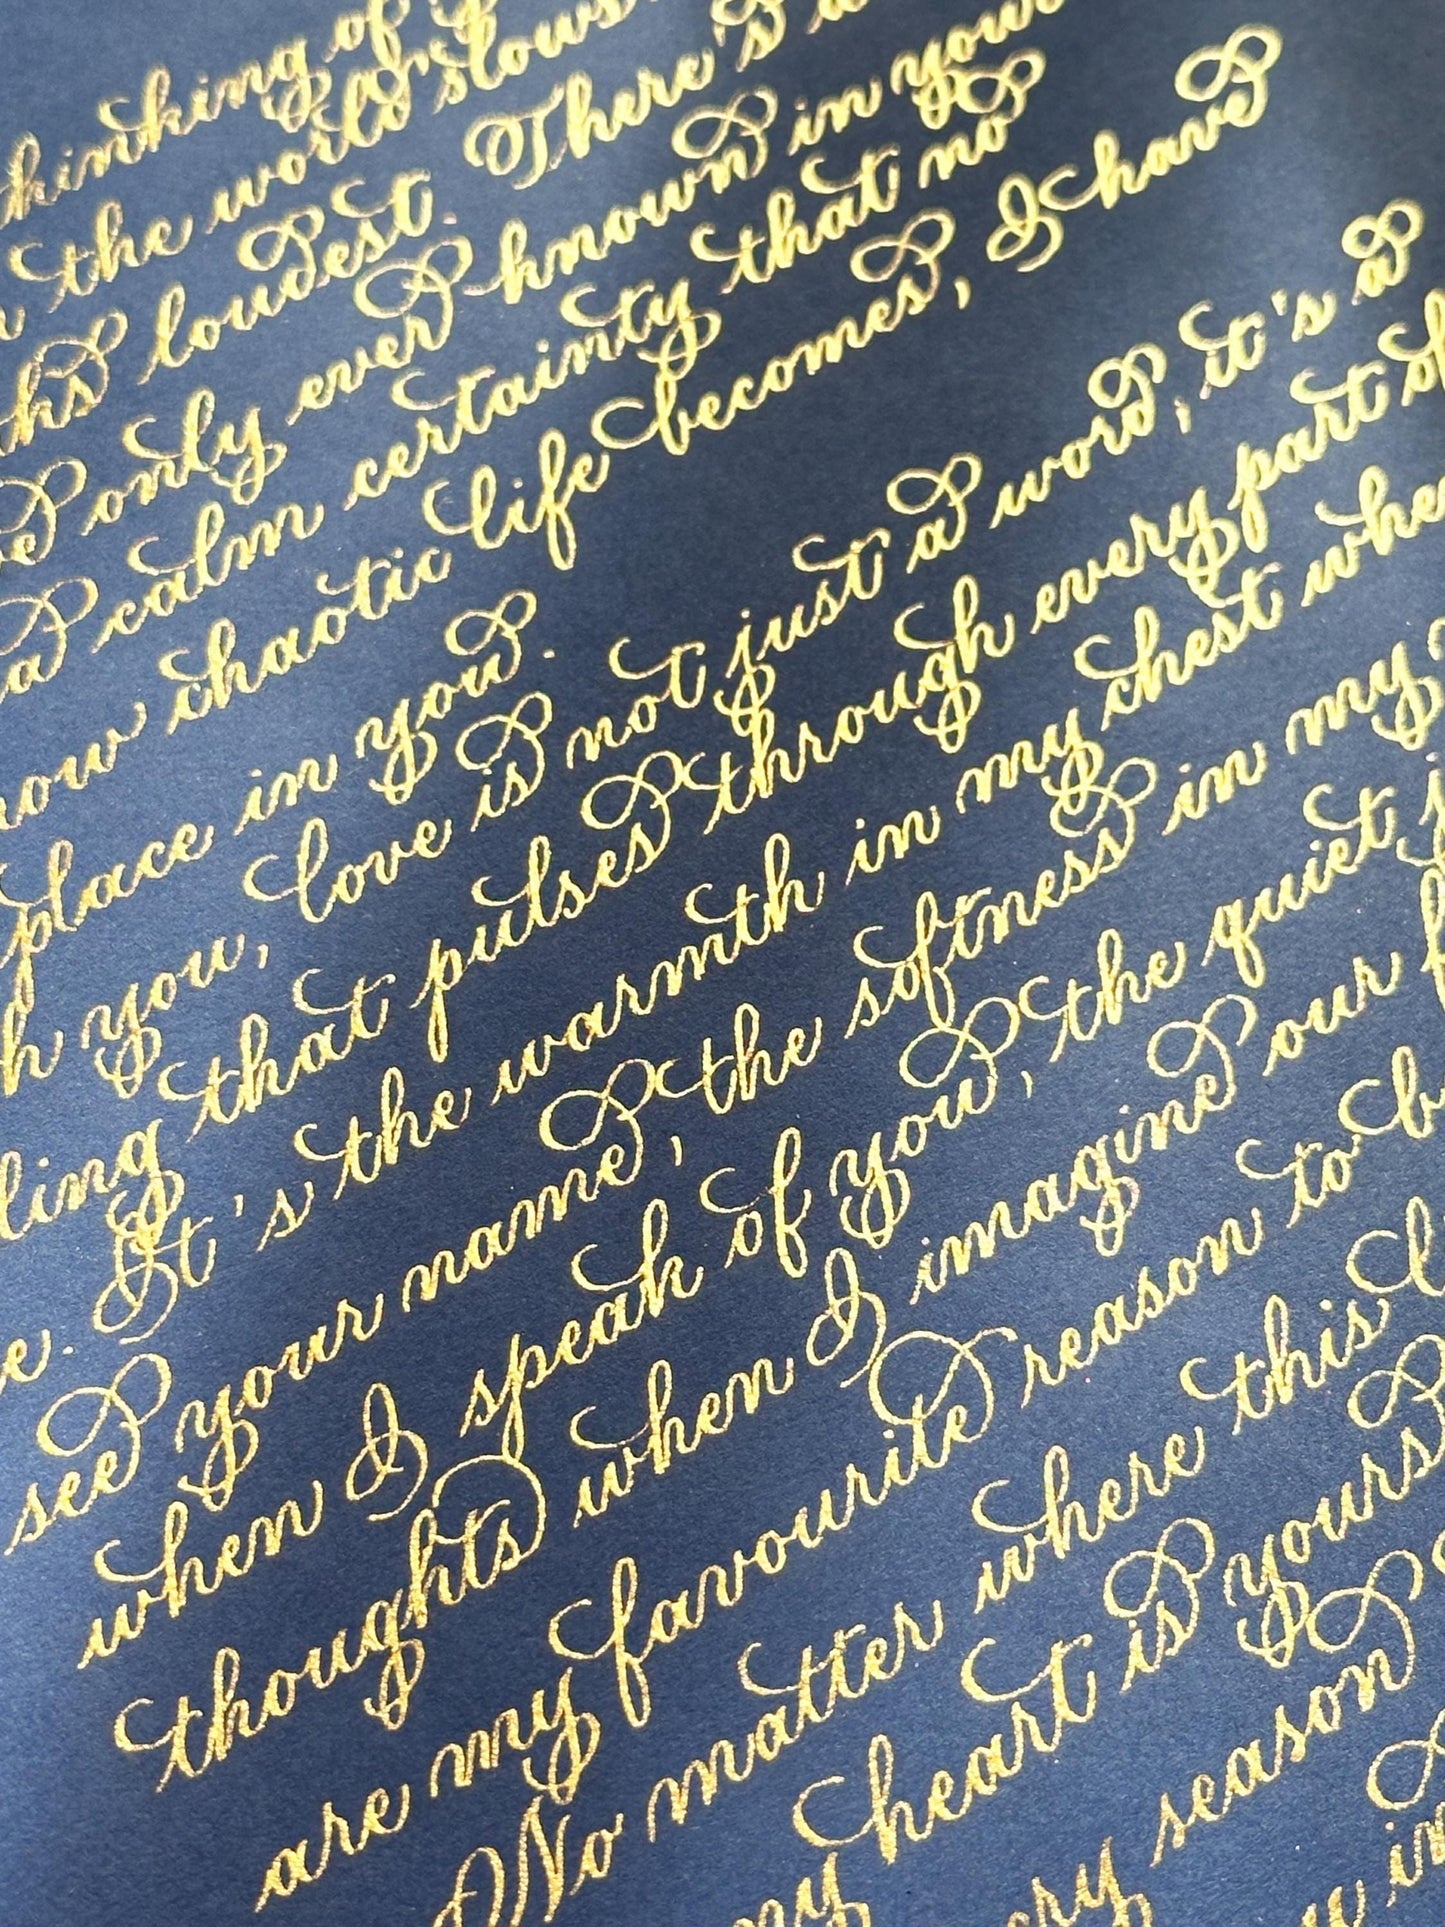 thinking of
the world slows
loudest. There's a
only ever known in your
a calm certainty that no
how chaotic life becomes, I have
place in you.
you, love is not just a word, it's a
that pulses through every part of
It's the warmth in my chest when
see your name, the softness in my
when I speak of you, the quiet
thoughts when I imagine our
are my favourite reason to
No matter where this
heart is yours
season